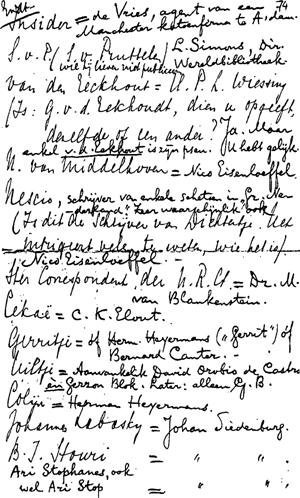 74
Insider = de Vries, agent van een
Manchester katoenfirma te A'dam.
S. v. P. (S. v. Prattel) L. Simons, Dir.
(wie bij lieven niet putten) Wereldbibliotheek
van den Eeckhout = A. P. L. Wiessing
(Is: G. v. d. Eeckhoudt, dien u opgeeft,
dezelfde of een ander? Ja. Maar
enkel v. d. Eekhout is zijn pseu. U hebt gelijk.
N. van Middelhoven = Nico Eisenloeffel.
Nescio, schrijver van enkele schetsen in Gr. Ne-
derland. Zeer waarschijnlijk ook
(Is dit de schrijver van Dichtertje. Het
intrigeert velen te weten, wie het is)
= Nico Eisenloeffel. -
Haagsche Correspondent der N. R. Ct. = Dr. M.
van Blankenstein.
Eekaë = C. K. Elout.
Gerritje = of Herm. Heyermans ("Gerrit") of
Bernard Canter. -
Uiltje = Aanvankelijk David Orobio de Castro
en Gerzon Blok. Later: alleen G. B.
Colijn = Herman Heyermans.
Johannes Labosky = Johan Siedenburg.
B. J. Houri = " " .
Ari Stophanes, ook
wel Ari Stop = " " .